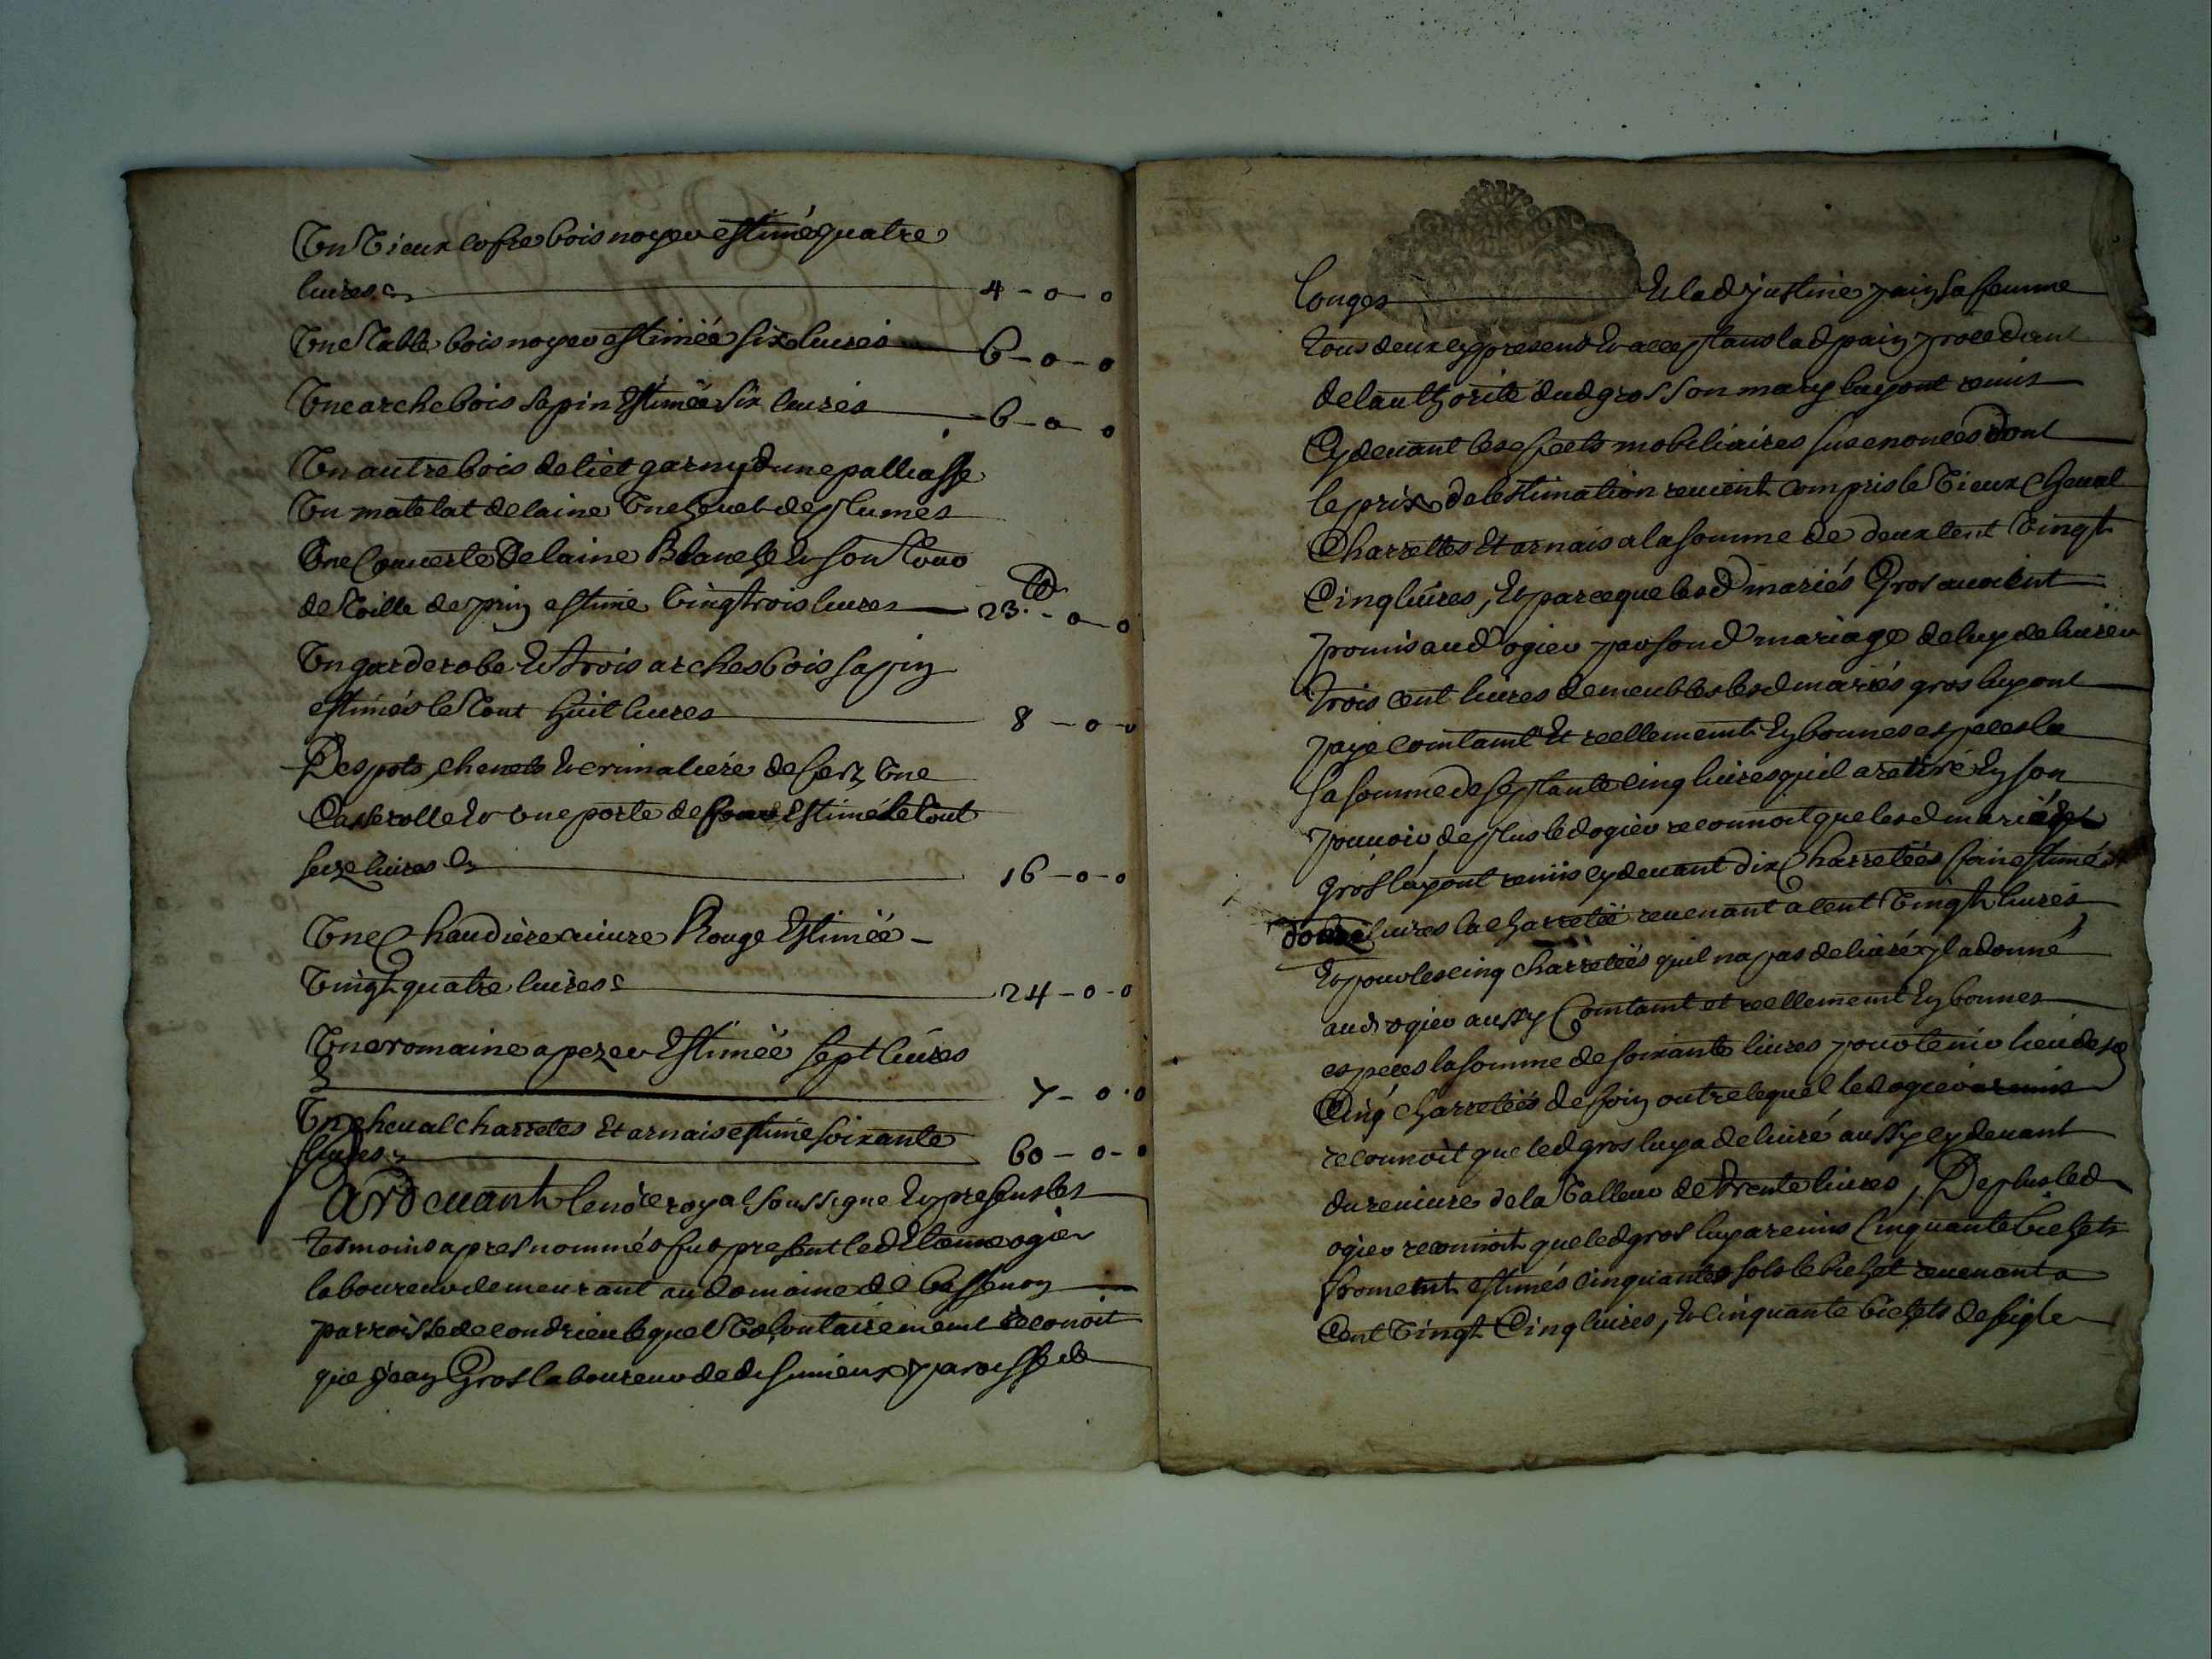 Un Vieux cofre bois noyer estimé quatre
livres 4 - 0 - 0
Une Table bois noyer estimée six livres 6 - 0 - 0
Une arche bois sapin Estimée Six livres 6 - 0 - 0
Un autre bois de liet garny d'une palliasse
Un matelat de laine Une chevet de plumes
Une Couverte De laine Blanche et son tour
de Toille de prin estimé Vingtrois livres 23 - 0 - 0
Un garderobe et trois arches bois sapin
estimés le Tout huit livres 8 - 0 - 0
Des pots, chenets et crimaliere de fert, Une
Casserolle et Une porte de four Estimé le tout
seize livres 16 - 0 - 0
Une Chaudiere cuivre Rouge Estimée -
Vingt quatre livres 24 - 0 - 0
Une romaine a pezer Estimée sept livres
7 - 0 - 0
Un cheval charretes Et arnais estimé soixante
livres 60 - 0 - 0
Pardevant le nore royal Soussigne et presents les
tesmoins apres nommés fut present led Etienne ogier
laboureur demeurant au domaine de
parroisse de condrieu lequel Volontairement reconoit
que jean Gros laboureur de parroisse de
Longes Et lad justine pain sa femme
tous deux cy present et acceptans lad pain procedant
de lauthorité dud gros son mary luy ont remis
Cy devant les efects mobiliaires susenoncés dont
le prix de lestimation revient compris le Vieux Cheval
Charrettes Et arnais a la somme de deux cent Vingt
Cinq livres, et parceque lesd mariés Gros avoient
promis aud ogier par son d mariage de luy delivrer
trois cent livres de meubles lesd mariés gros luy ont
payé comtamt Et reellement Ey bonnes especes la
sa somme de septante cinq livres quil a retiré Ey son
pouvoir de plus led ogier reconnoit que lesd mariés
gros luy ont remis cy devant dix Charretées foin estimé
douze livres la charretée revenant a cent Vingt livres
Et pour les cinq charretées quil na pas delivré yl a donné
aud ogier aussy Comtamt et reellement Ey bonnes
especes la somme de soixante livres pour tenir lieu desd
Cinq charretées de foin outre lequel led ogier a remis
reconnoit que led gros luy a delivré aussy cy devant
du reniure de la Valleur de trente livres, De plus led
ogier reconnoit que led gros luy a remis Cinquante bichets
froment estimés cinquantes sols le bichet revenant a
Cent Vingt Cinq livres, et cinquante bichets de seigle